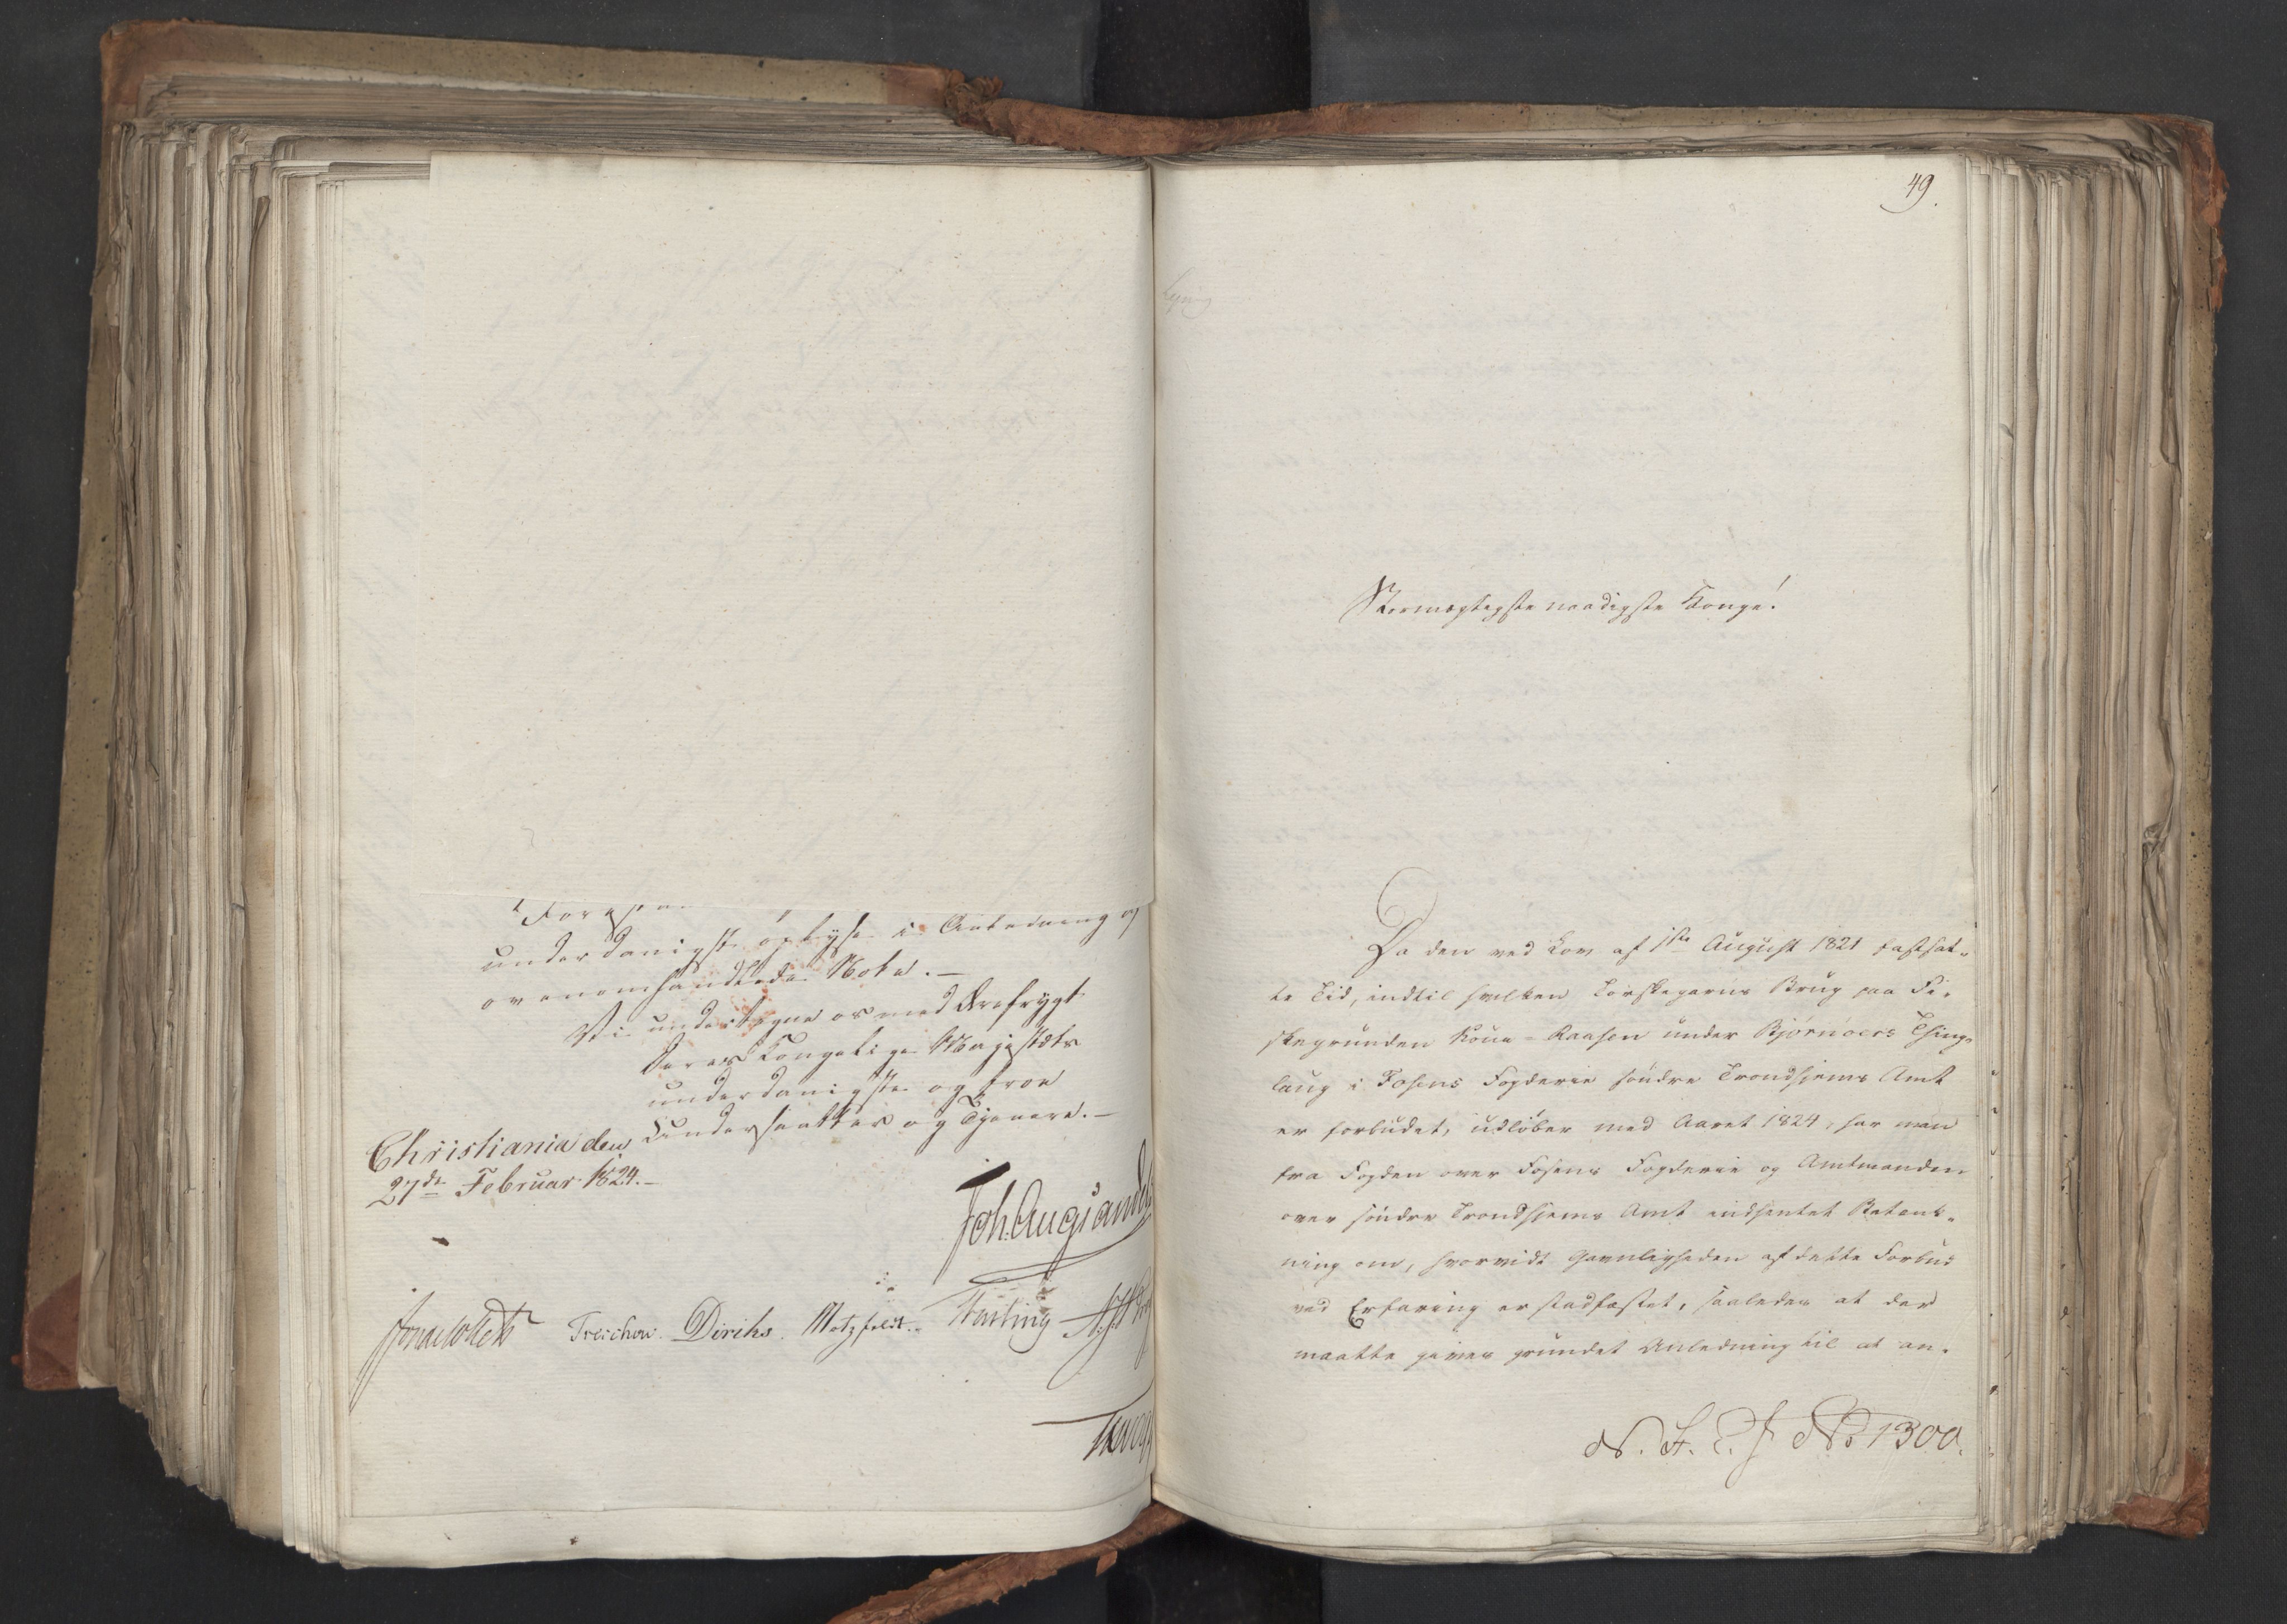 underdanigst oplyse i Anledning af
ovenomhandlede Nota. —
Vi undertegne os med Ærefrygt
Deres Kongelige Majestæts
underdanigste og troe
Undersaatter og Tjenere. —
Christiania den
27de Februar 1824. —
Joh: Aug: Sande
Jonas Collett Treschow. Diriks. Motzfeldt.
49.
Stormægtigste naadigste Konge!
Da den ved Lov af 1ste August 1821 fastsat-
te Tid, indtil hvilken Torskegarns Brug paa Fi-
skegrunden Koua-Raasen under Bjørnøers Thing-
laug i Fosens Fogderie søndre Trondhjems Amt
er forbudet, udløber med Aaret 1824, har man
fra Fogden over Fosens Fogderie og Amtmanden
over søndre Trondhjems Amt indhentet Betænk-
ning om, hvorvidt Gavnligheden af dette Forbud
ved Erfaring er stadfæstet, saaledes at der
maatte gives grundet Anledning til at an-
No 1300.